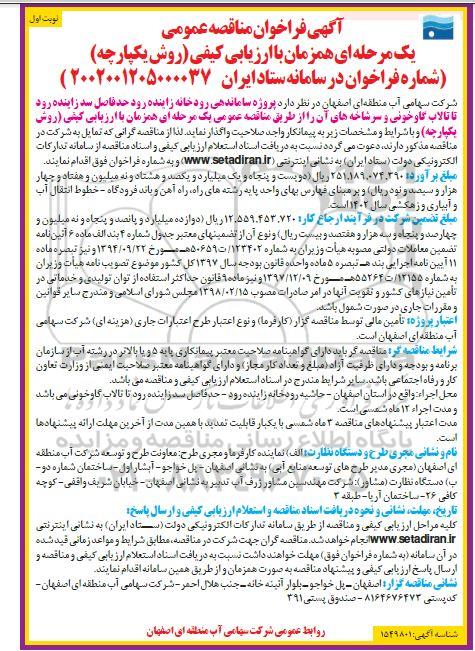 نوبت اول
آگهی فراخوان مناقصه عمومی
یک مرحله ای همزمان با ارزیابی کیفی (روش یکپارچه)
(شماره فراخوان در سامانه ستاد ایران 2002001205000037)
شرکت سهامی آب منطقه‌ای اصفهان در نظر دارد پروژه ساماندهی رودخانه زاینده رود حدفاصل سد زاینده رود
تا تالاب گاوخونی و سرشاخه های آن را از طریق مناقصه عمومی یک مرحله ای همزمان با ارزیابی کیفی (روش
یکپارچه) و با شرایط و مشخصات زیر به پیمانکار واجد صلاحیت واگذار نماید. لذا از مناقصه گرانی که تمایل به شرکت در
مناقصه مذکور دارند، دعوت می گردد نسبت به دریافت اسناد استعلام ارزیابی کیفی و اسناد مناقصه از سامانه تدارکات
الکترونیکی دولت (ستاد ایران) به نشانی اینترنتی (www.setadiran.ir) و به شماره فراخوان فوق اقدام نمایند.
مبلغ برآورد: 251,189,074,390 ریال (دویست و پنجاه و یک میلیارد و یکصد و هشتاد و نه میلیون و هفتاد و چهار
هزار و سیصد و نود ریال) و بر مبنای فهارس بهای واحد پایه رشته های راه، راه آهن و باند فرودگاه - خطوط انتقال آب
و آبیاری و زهکشی سال 1402 است.
مبلغ تضمین شرکت در فرآیند ارجاع کار: 12,559,453,720 ریال (دوازده میلیارد و پانصد و پنجاه و نه میلیون و
چهارصد و پنجاه و سه هزار و هفتصد و بیست ریال) و نوع آن از تضمینهای معتبر جدول شماره 4 بند الف ماده 6 آئین نامه
تضمین معاملات دولتی مصوبه هیأت وزیران به شماره 123402/ت50659هـ مورخ 1394/09/22 و نیز تبصره ماده
11 آیین نامه اجرایی بند هـ تبصره 5 ماده واحده قانون بودجه سال 1397 کل کشور موضوع تصویب نامه هیأت وزیران
به شماره 12155/ت55262هـ مورخ 1397/02/09 و نیز ماده 9 قانون حداکثر استفاده از توان تولیدی و خدماتی در
تأمین نیازهای کشور و تقویت آنها در امر صادرات مصوب 1398/02/15 مجلس شورای اسلامی و مندرج سایر قوانین
و مقررات جاری در صورت شمول باشد.
اعتبار پروژه: تأمین مالی توسط مناقصه گزار (کارفرما) و نوع اعتبار طرح اعتبارات جاری (هزینه ای) شرکت سهامی
آب منطقه‌ای اصفهان است.
شرایط مناقصه گر: مناقصه گر باید دارای گواهینامه صلاحیت معتبر پیمانکاری پایه 5 و یا بالاتر در رشته آب از سازمان
برنامه و بودجه و دارای ظرفیت آزاد (مبلغ و تعداد کار مجاز) و دارای گواهینامه معتبر صلاحیت ایمنی از وزارت تعاون
کار و رفاه اجتماعی باشد. سایر شرایط مندرج در اسناد استعلام ارزیابی کیفی و مناقصه می باشد.
محل اجراء: واقع در استان اصفهان - حاشیه رودخانه زاینده رود - حدفاصل سد زاینده رود تا تالاب گاوخونی می باشد
و مدت اجراء 12 ماه شمسی است.
مدت اعتبار پیشنهادهای مناقصه 3 ماه شمسی با یکبار قابلیت تمدید با همین مدت از آخرین مهلت ارائه پیشنهادها
است.
نام و نشانی مجری طرح و دستگاه نظارت: الف) نماینده کارفرما و مجری طرح: معاونت طرح و توسعه شرکت آب منطقه
ای اصفهان (مجری مدیر طرح های توسعه منابع آبی) به نشانی اصفهان - پل خواجو - آبشار اول - ساختمان شماره دو -
ب) دستگاه نظارت (مشاور): شرکت مهندسین مشاور ژرف آب تدبیر به نشانی اصفهان - خیابان شریف واقفی - کوچه
کافی 26 - ساختمان آریا - طبقه 3
تاریخ، مهلت، نشانی و نحوه دریافت اسناد مناقصه و استعلام ارزیابی کیفی و ارسال پاسخ:
کلیه مراحل ارزیابی کیفی و مناقصه از طریق سامانه تدارکات الکترونیکی دولت (ستاد ایران) به نشانی اینترنتی
www.setadiran.ir انجام خواهد شد. مناقصه گران جهت شرکت در مناقصه، مطابق شرایط و مواعد زمانی قید شده
در آن سامانه (به شماره فراخوان فوق) مهلت خواهند داشت نسبت به دریافت اسناد استعلام ارزیابی کیفی و مناقصه و
ارسال پاسخ ارزیابی کیفی و پیشنهاد مناقصه به صورت همزمان و از طریق همین سامانه اقدام نمایند.
نشانی مناقصه گزار: اصفهان - پل خواجو - بلوار آئینه خانه - جنب هلال احمر - شرکت سهامی آب منطقه ای اصفهان -
کدپستی 8164676473 - صندوق پستی 391
روابط عمومی شرکت سهامی آب منطقه ای اصفهان
شناسه آگهی: 1549801